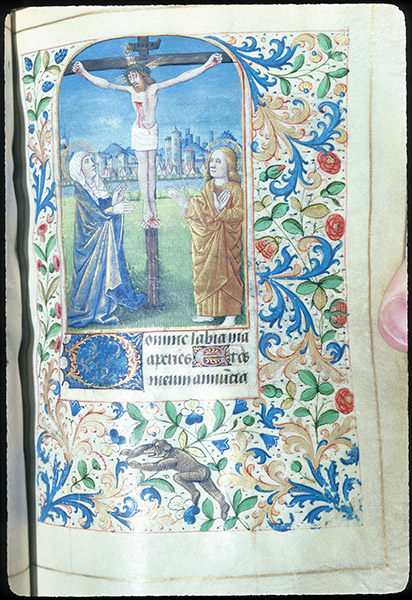 Domine labia m̄a
aperies Et os
meum annūcia